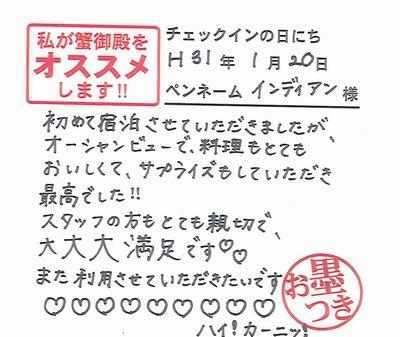 私が蟹御殿を
オススメ
します!!
チェックインの日にち
H31年 1月20日
ペンネーム インディアン 様
初めて宿泊させていただきましたが、
オーシャンビューで、料理もとても
おいしくて、サプライズもしていただき
最高でした!!
スタッフの方もとても親切で、
大大大満足です♡♡
また利用させていただきたいです
♡♡♡♡♡♡♡♡♡
ハイ!カーニッ!
お墨つき